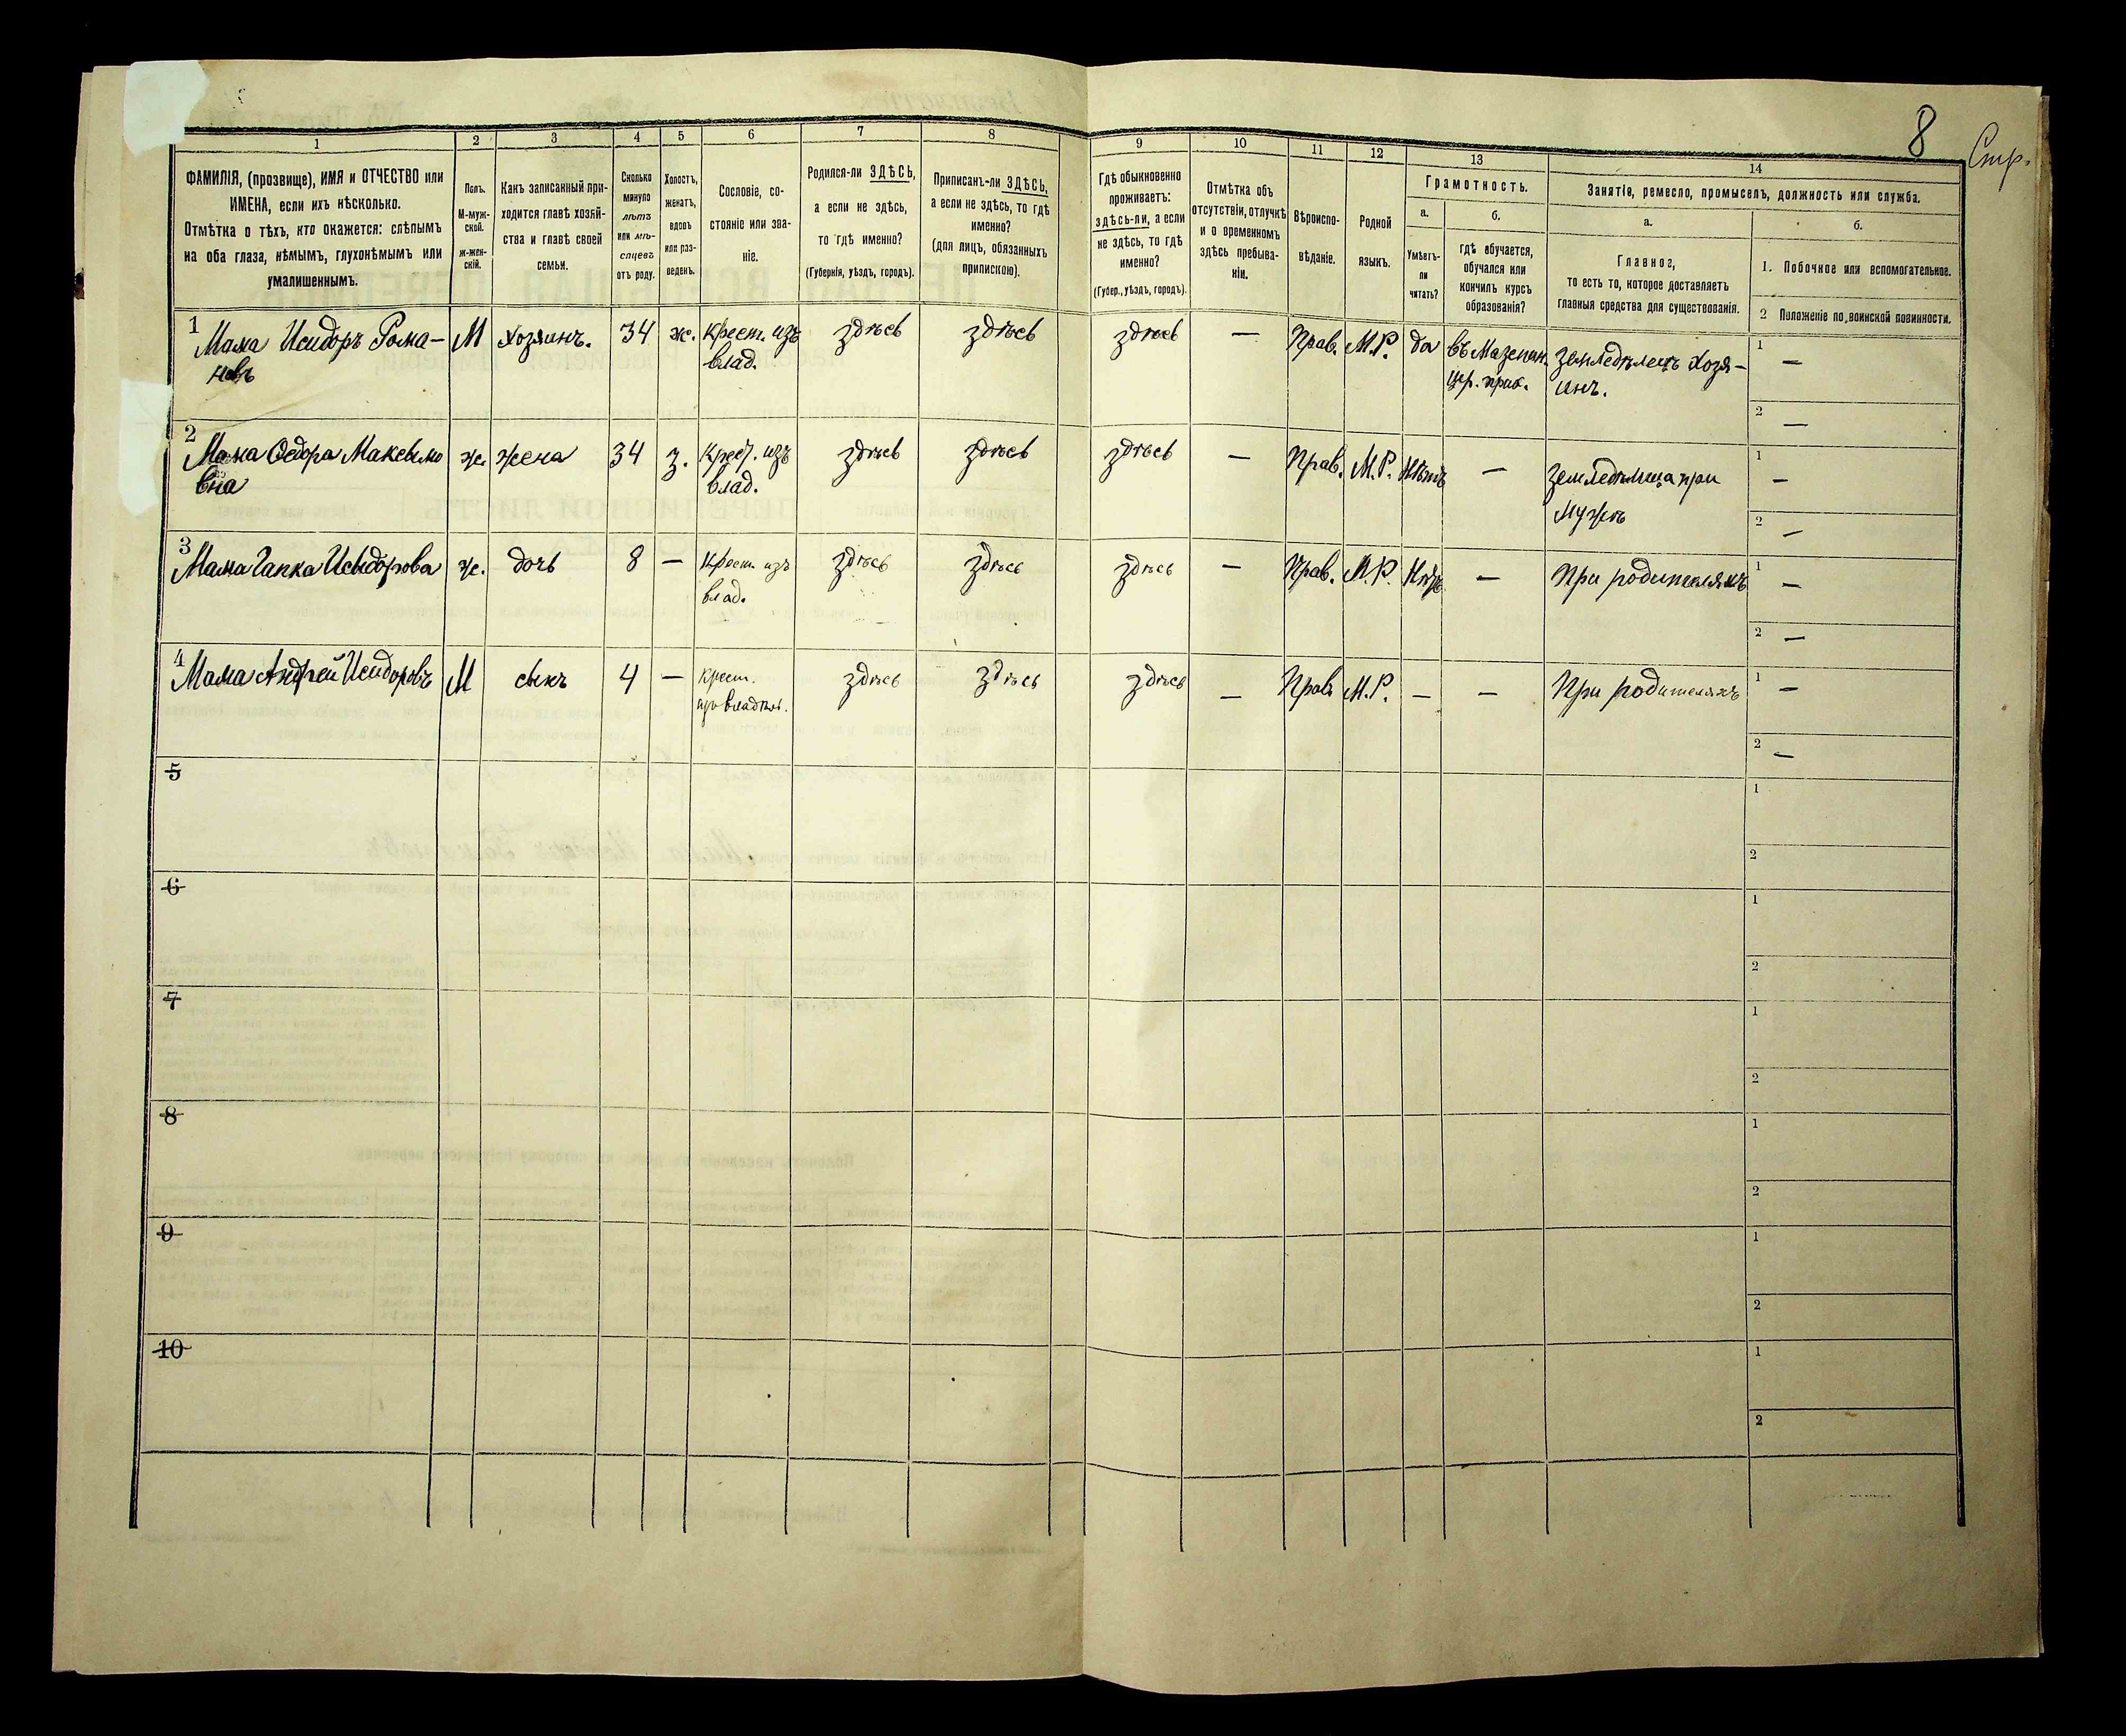 8 Стр.
1 2 3 4 5 6 7 8 9 10 11 12 13 14
ФАМИЛІЯ, (прозвище), ИМЯ и ОТЧЕСТВО или
ИМЕНА, если ихъ нѣсколько.
Отмѣтка о тѣхъ, кто окажется: слѣпымъ
на оба глаза, нѣмымъ, глухонѣмымъ или
умалишеннымъ.
Полъ.
М-муж-
ской.
Ж-жен-
скій.
Какъ записанный при-
ходится главѣ хозяй-
ства и главѣ своей
семьи.
Сколько
минуло
лѣтъ
или мѣ-
сяцевъ
отъ роду.
Холостъ,
женатъ,
вдовъ
или раз-
веденъ.
Сословіе, со-
стояніе или зва-
ніе.
Родился-ли ЗДѢСЬ,
а если не здѣсь,
то гдѣ именно?
(Губернія, уѣздъ, городъ).
Приписанъ-ли ЗДѢСЬ,
а если не здѣсь, то гдѣ
именно?
(для лицъ, обязанныхъ
припиской).
Гдѣ обыкновенно
проживаетъ:
здѣсь-ли, а если
не здѣсь, то гдѣ
именно?
(Губер., уѣздъ, городъ).
Отмѣтка объ
отсутствіи, отлучкѣ
и о временномъ
здѣсь пребыва-
ніи.
Вѣроиспо-
вѣданіе.
Родной
языкъ.
Грамотность.
а.
Умѣетъ-
ли
читать?
б.
гдѣ обучается,
обучался или
кончилъ курсъ
образованія?
Занятіе, ремесло, промыселъ, должность или служба.
а.
Главное,
то есть то, которое доставляетъ
главныя средства для существованія.
б.
1. Побочное или вспомогательное.
2 Положеніе по воинской повинности.
1 Мама Исидоръ Рома- М хозяинъ. 34 ж. крест. изъ здѣсь здѣсь здѣсь — Прав. М.Р. да въ Мазепин. земледѣлецъ хозя- 1 —
новъ влад. цер. прих. инъ.
2 —
2 Мама Федора Максимо ж. жена 34 з. крест. изъ здѣсь здѣсь здѣсь — Прав. М.Р. нѣтъ — земледѣлица при 1 —
вна влад. мужѣ 2 —
3 Мама Гапка Исидорова ж. дочь 8 — крест. изъ здѣсь здѣсь здѣсь — Прав. М.Р. нѣтъ — При родителяхъ 1 —
влад.
2 —
4 Мама Андрей Исидоровъ М сынъ 4 — крест. здѣсь здѣсь здѣсь — Прав М.Р. — — При родителяхъ 1 —
изъ владѣл.
2 —
5 1
2
6 1
2
7 1
2
8 1
2
9 1
2
10 1
2